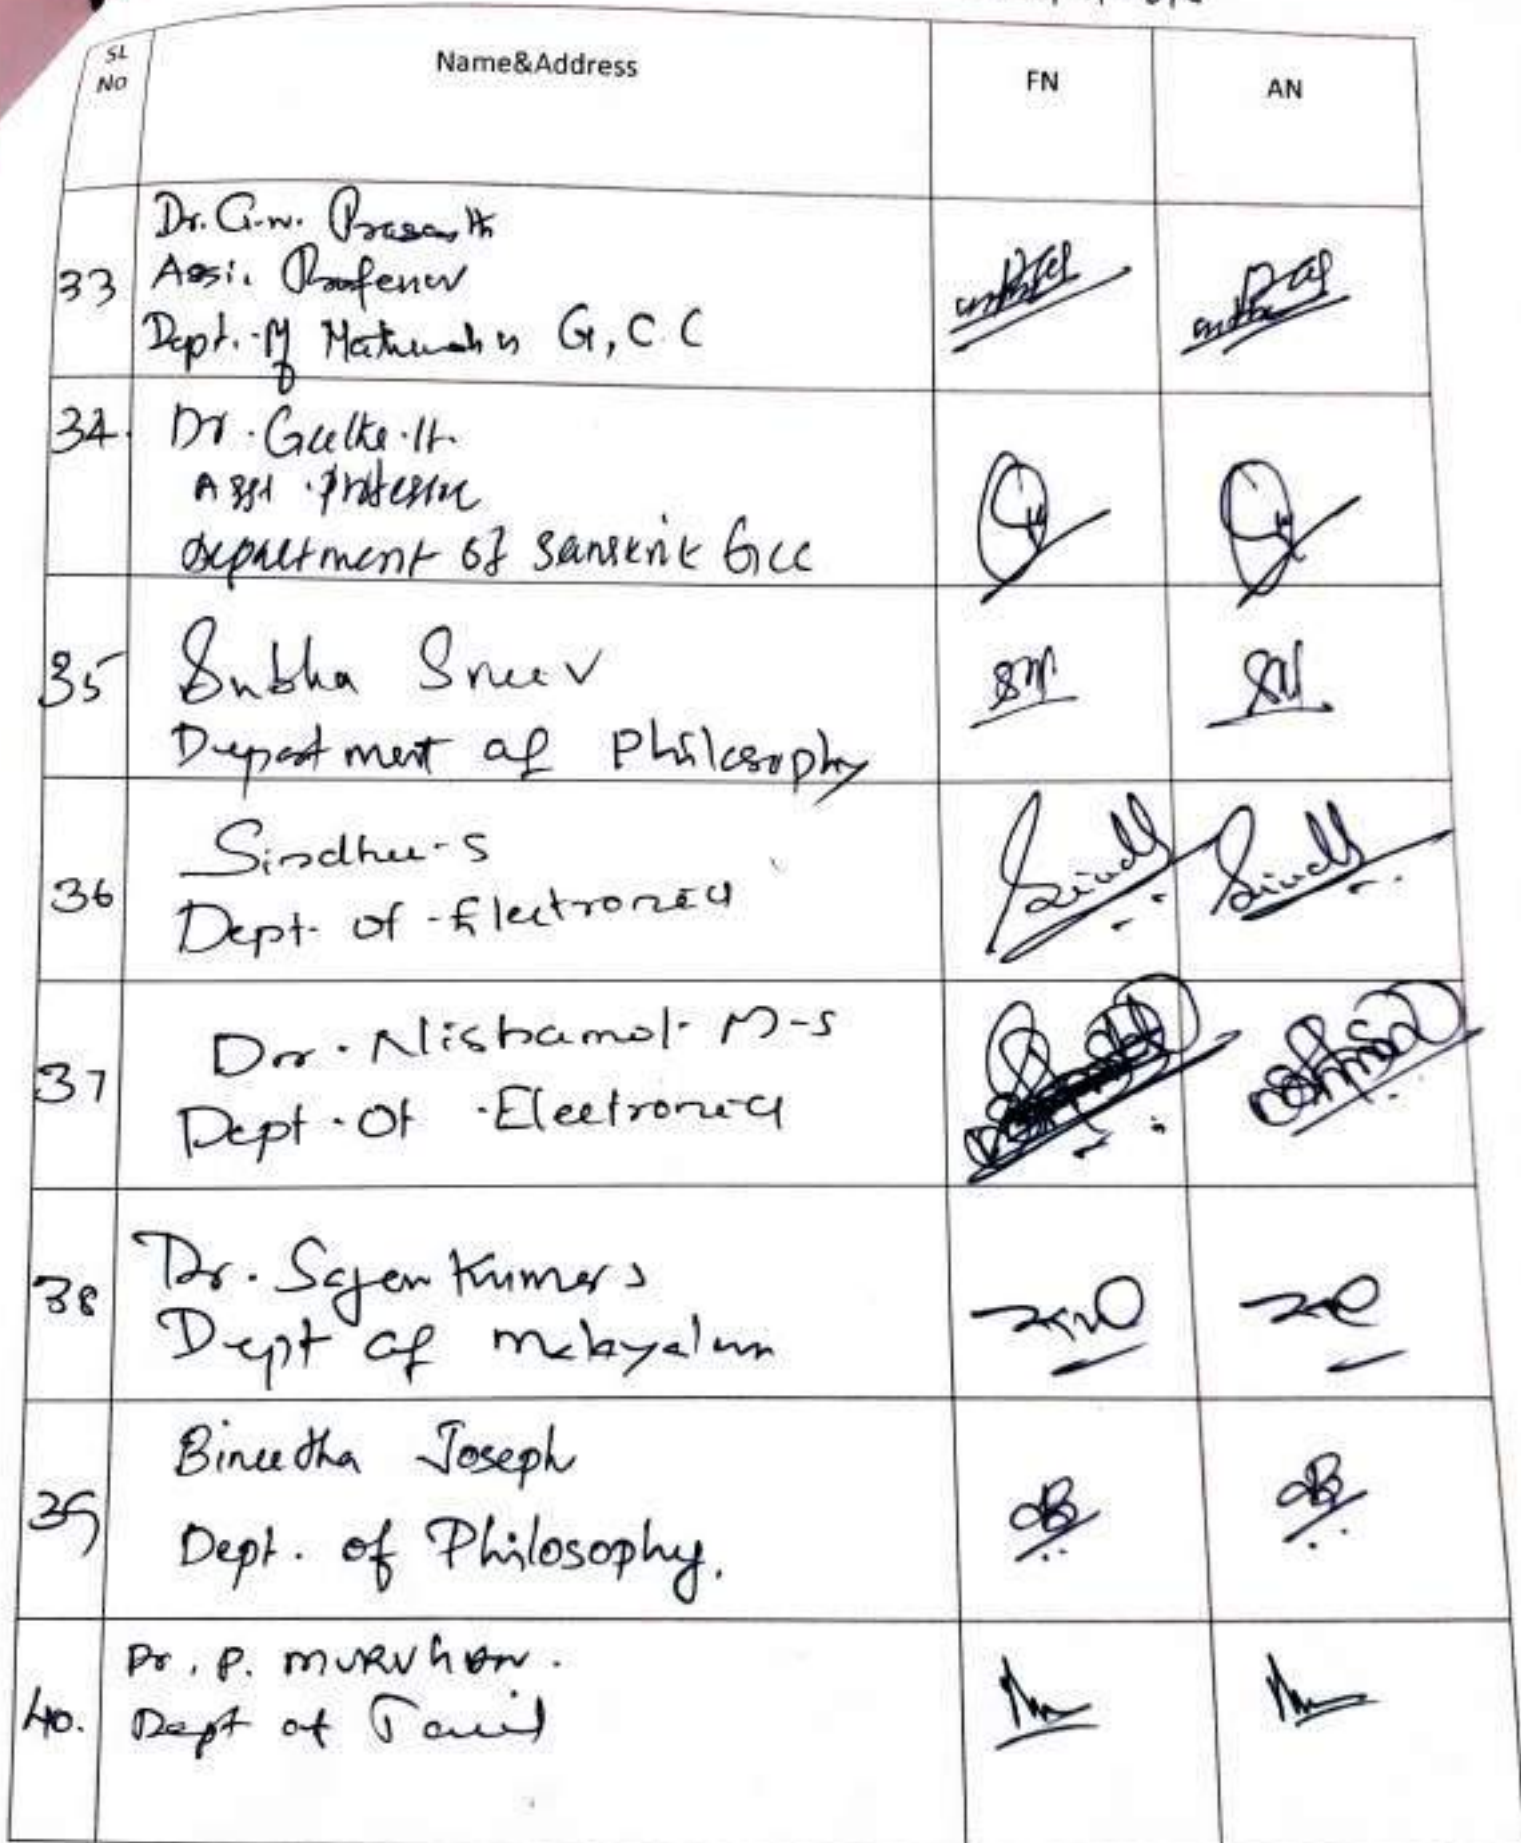 SL No
Name&Address
FN
AN
33
Dr. G.N. Prasanth
Assi. Professor
Dept. of Mathematics G.C.C
34.
Dr. Geetha. H.
Asst. Professor
Department of Sanskrit Gcc
35
Subha Sree V
Department of Philosophy
36
Sindhu-S
Dept. of Electronics
37
Dr. Nishamol. M-S
Dept. Of Electronics
38
Dr. Sajen Kumar S
Dept of Malayalam
39
Bineetha Joseph
Dept. of Philosophy.
40.
Dr. P. MURUhan.
Dept of Tamil